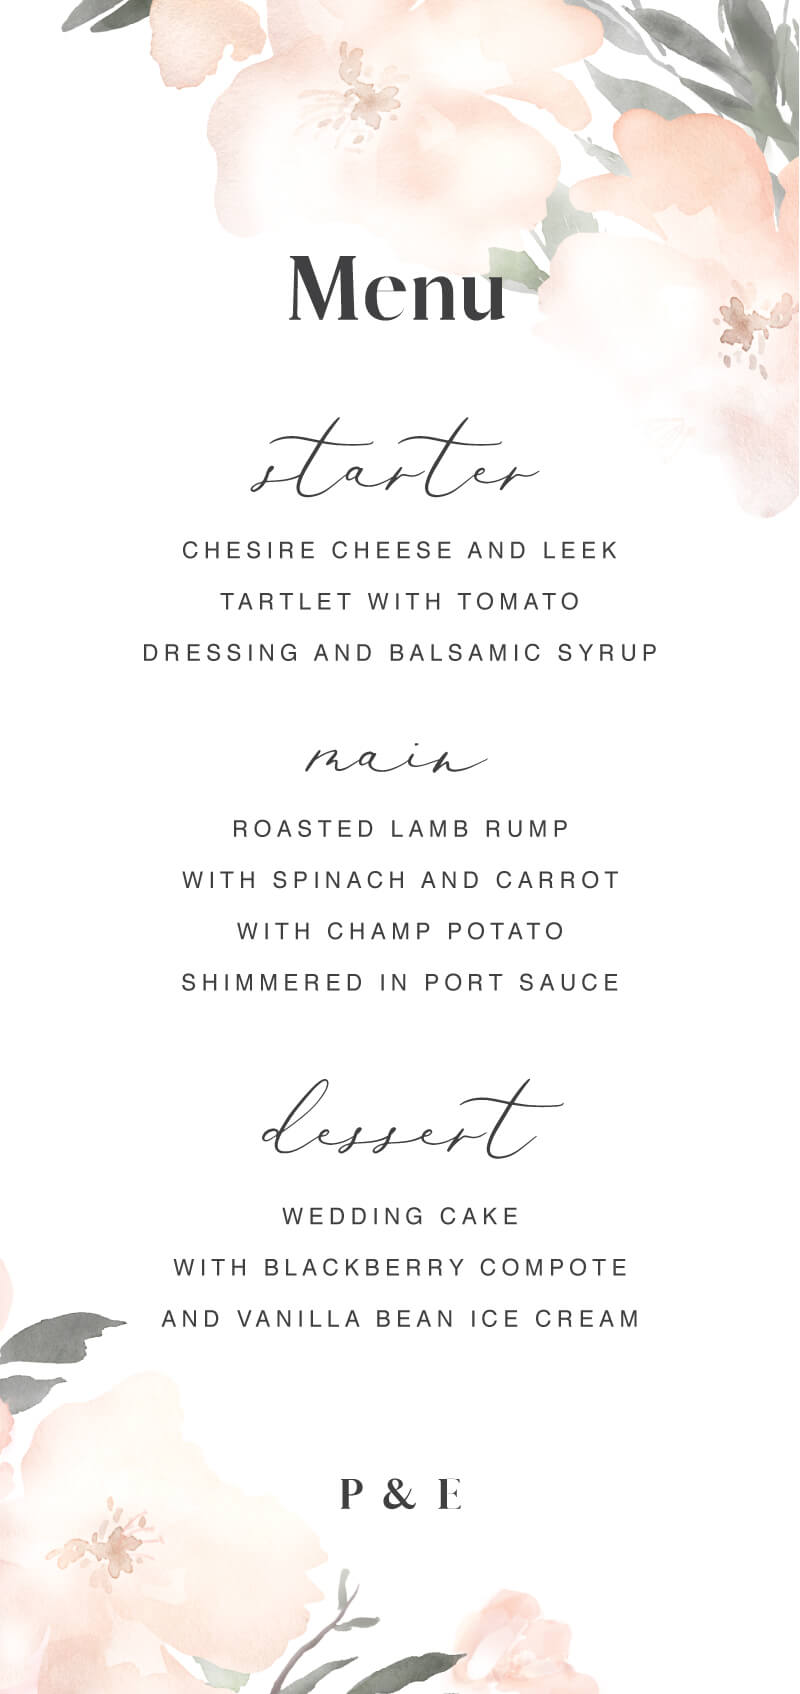 Menu
starter
CHESIRE CHEESE AND LEEK
TARTLET WITH TOMATO
DRESSING AND BALSAMIC SYRUP
main
ROASTED LAMB RUMP
WITH SPINACH AND CARROT
WITH CHAMP POTATO
SHIMMERED IN PORT SAUCE
dessert
WEDDING CAKE
WITH BLACKBERRY COMPOTE
AND VANILLA BEAN ICE CREAM
P & E